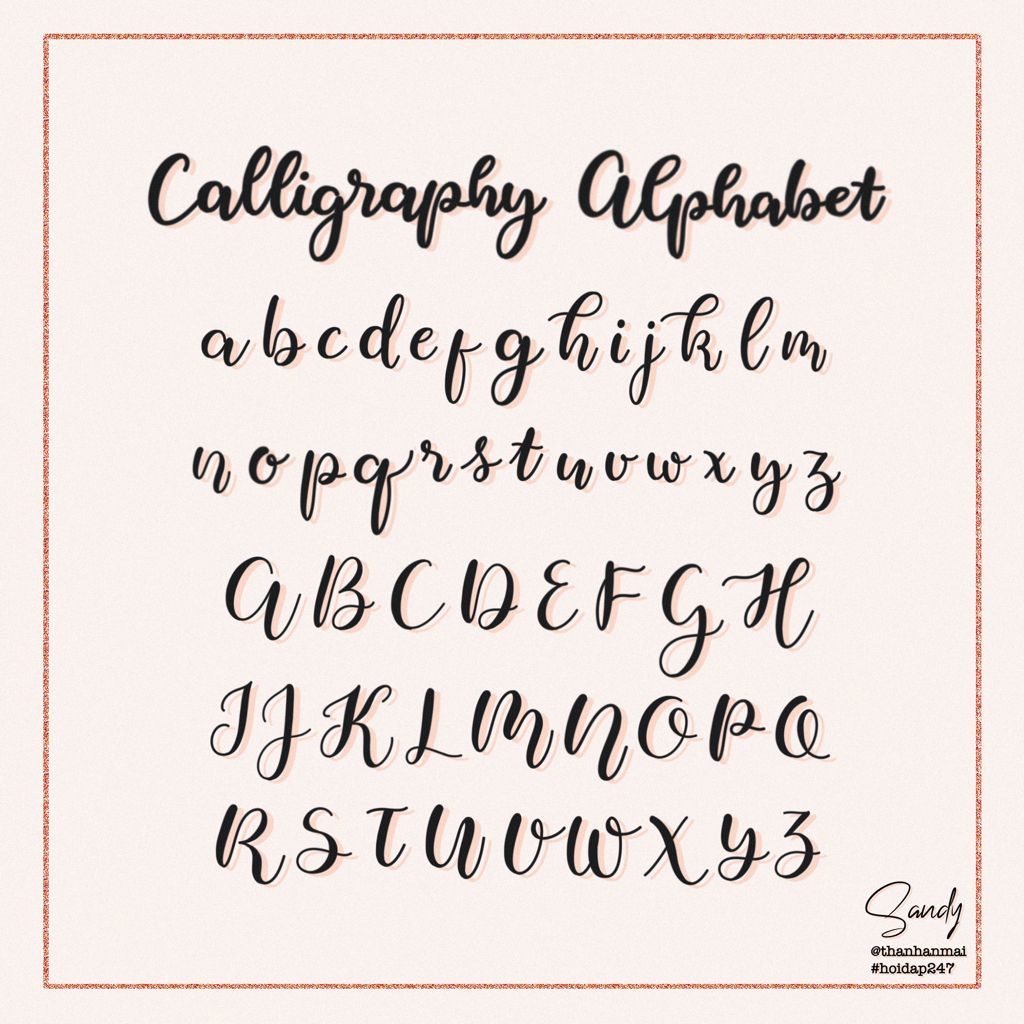 Calligraphy Alphabet
a b c d e f g h i j k l m
n o p q r s t u v w x y z
A B C D E F G H
I J K L M N O P Q
R S T U V W X Y Z
Sandy
@thanhanmai
#hoidap247